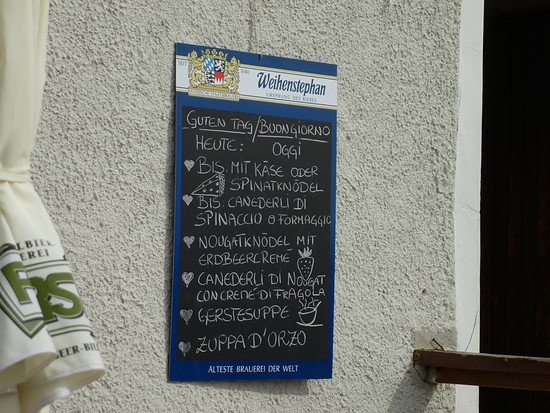 SEIT 1040
Weihenstephan
URSPRUNG DES BIERES
GUTEN TAG/BUONGIORNO
HEUTE: OGGI
BIS: MIT KÄSE ODER
SPINATKNÖDEL
BIS: CANEDERLI DI
SPINACCIO O FORMAGGIO
NOUGATKNÖDEL MIT
ERDBEERCREME
CANEDERLI DI NOUGAT
CON CREME DI FRAGOLA
GERSTESUPPE
ZUPPA D'ORZO
ÄLTESTE BRAUEREI DER WELT